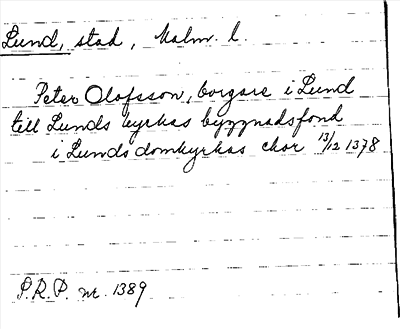 Lund, stad, Malm. l.
Peter Olofsson, borgare i Lund
till Lunds kyrkas byggnadsfond
i Lunds domkyrkas chor 13/12 1378
P.R.P. nr. 1389